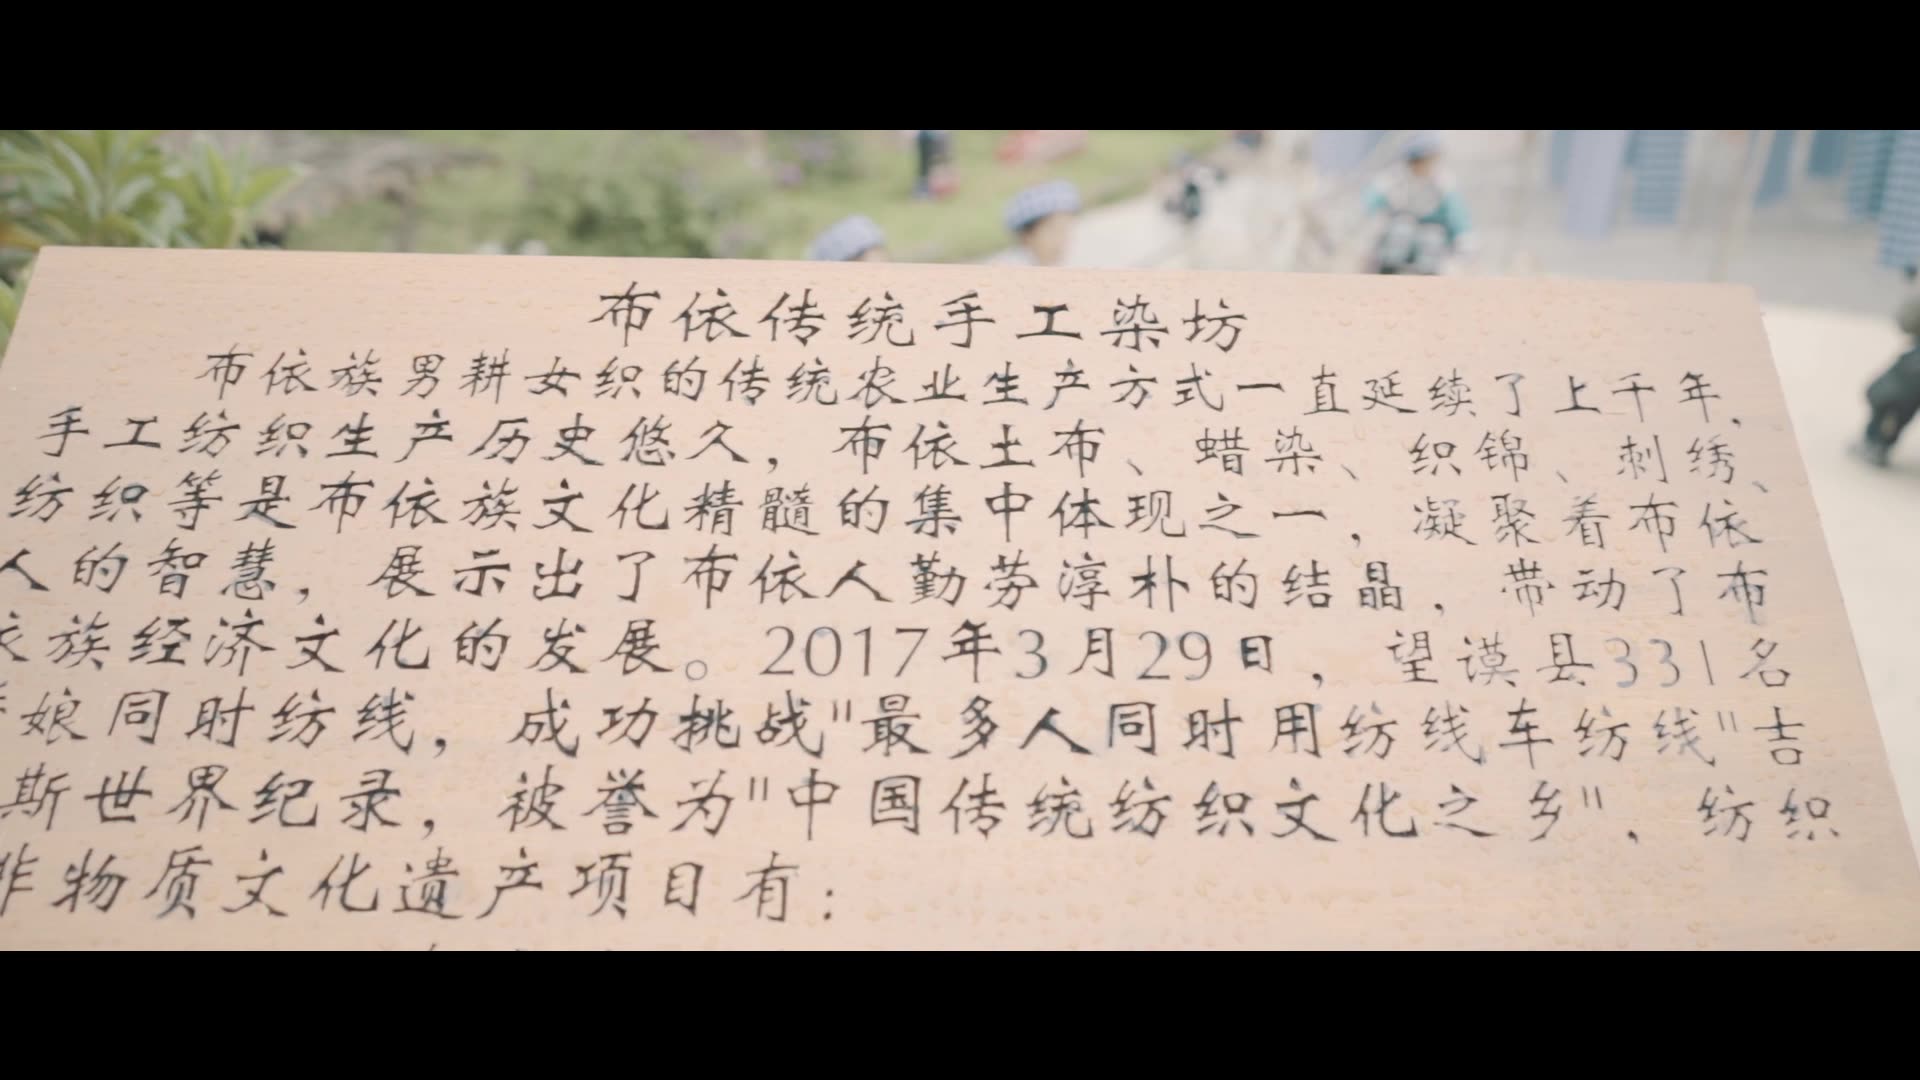 布依传统手工染坊
布依族男耕女织的传统农业生产方式一直延续了上千年,
手工纺织生产历史悠久，布依土布、蜡染、织锦、刺绣、
纺织等是布依族文化精髓的集中体现之一，凝聚着布依
人的智慧，展示出了布依人勤劳淳朴的结晶，带动了布
依族经济文化的发展。2017年3月29日，望谟县331名
娘同时纺线，成功挑战"最多人同时用纺线车纺线"吉
斯世界纪录，被誉为"中国传统纺织文化之乡"，纺织
非物质文化遗产项目有：